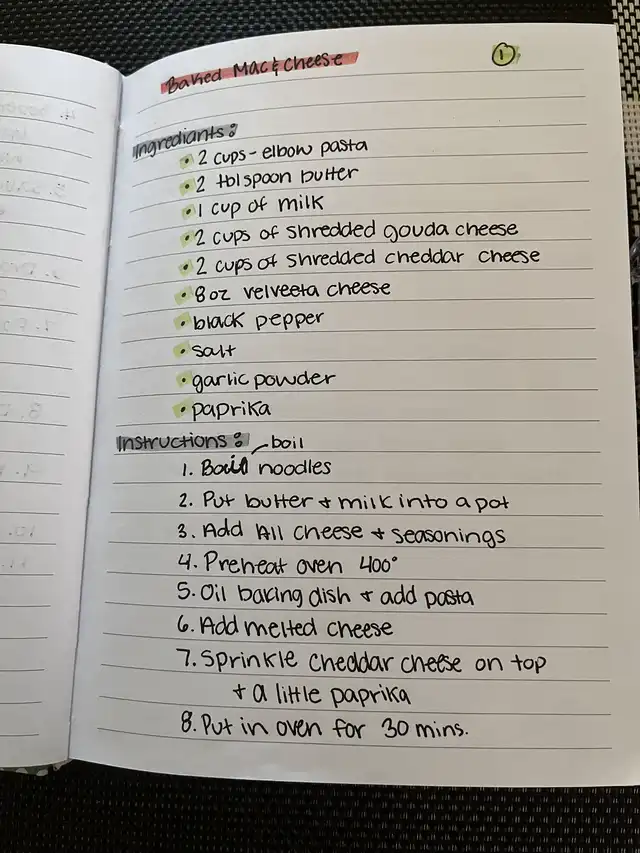 Baked Mac & Cheese
1
Ingrediants:
• 2 cups - elbow pasta
• 2 tblspoon butter
• 1 cup of milk
• 2 cups of shredded gouda cheese
• 2 cups of shredded cheddar cheese
• 8 oz velveeta cheese
• black pepper
• salt
• garlic powder
• paprika
Instructions:
boil
1. Boil noodles
2. Put butter + milk into a pot
3. Add All cheese + seasonings
4. Preheat oven 400°
5. Oil baking dish + add pasta
6. Add melted cheese
7. Sprinkle cheddar cheese on top
+ a little paprika
8. Put in oven for 30 mins.